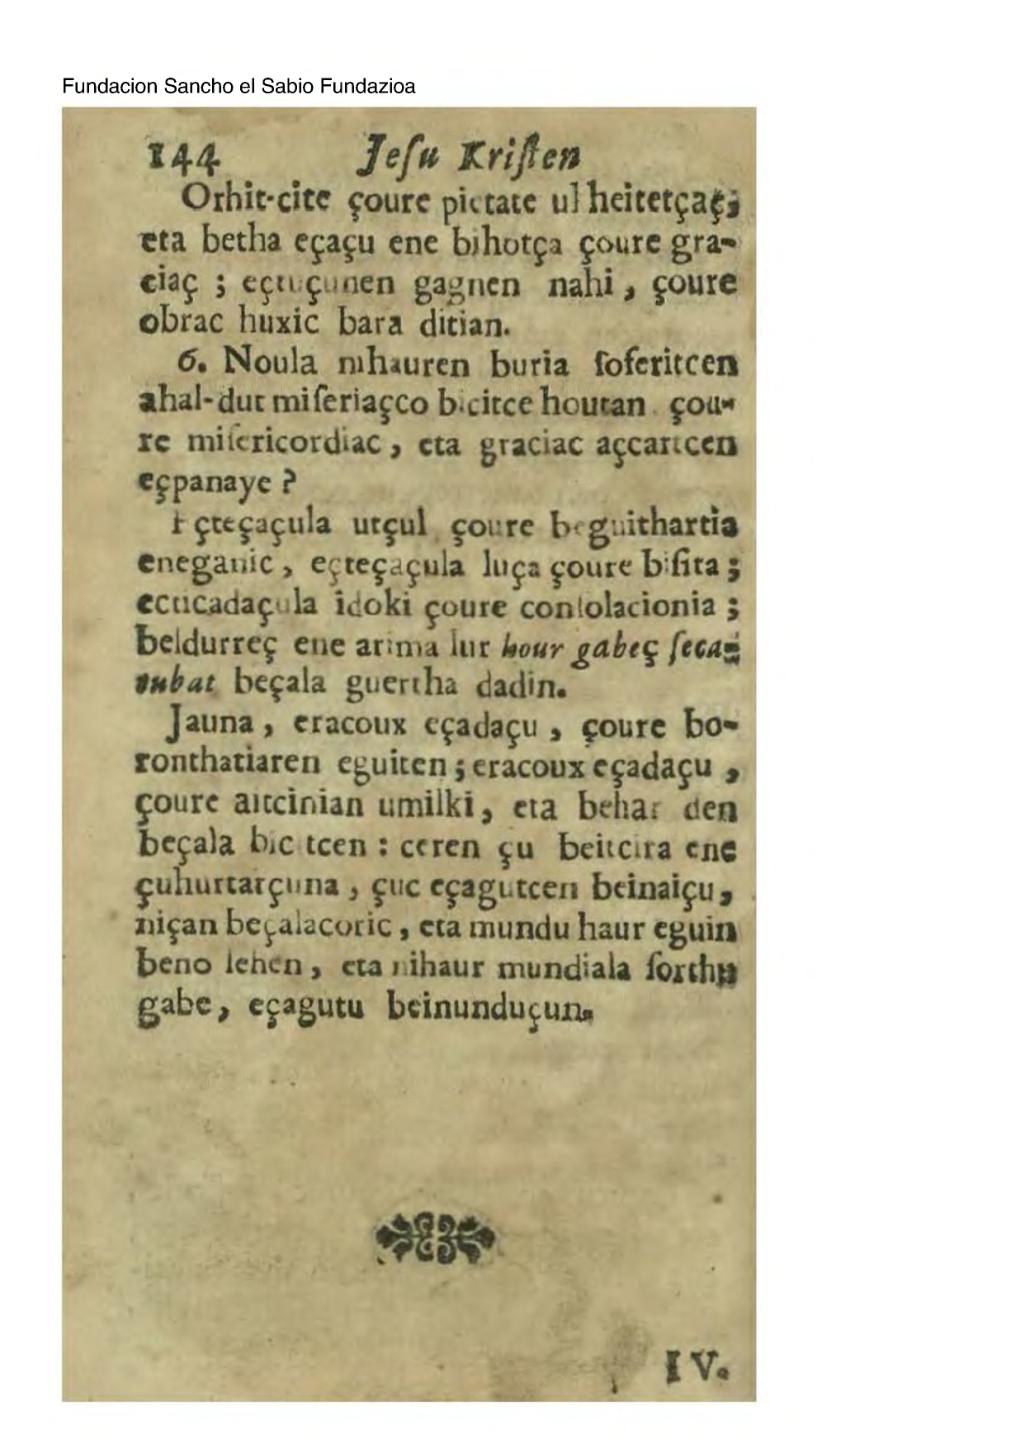 Fundacion Sancho el Sabio Fundazioa
144 Jeſu Kriſten
Orhit-cite çoure pietate ulheitetçaç;
eta betha eçaçu ene bihotça çoure gra-
ciaç ; eçtuçunen gagnen nahi, çoure
obrac huxic bara ditian.
6. Noula nihauren buria ſoferitcen
ahal-dut miſeriaçco bicitce houtan çou-
re miſericordiac, eta graciac açcartcen
eçpanaye ?
Eçteçaçula utçul çoure beguithartia
eneganic, eçteçaçula luça çoure biſita ;
ectucadaçula idoki çoure conſolacionia ;
beldurreç ene arima lur hour gabeç ſeca
tubat beçala guertha dadin.
Jauna, eracoux eçadaçu, çoure bo-
ronthatiaren eguiten ; eracoux eçadaçu,
çoure aitcinian umilki, eta behar den
beçala bicitcen : ceren çu beitcira ene
çuhurtarçuna, çuc eçagutcen beinaiçu,
niçan beçalacoric, eta mundu haur eguin
beno lehen, eta nihaur mundiala ſorthu
gabe, eçagutu beinunduçun.
IV.